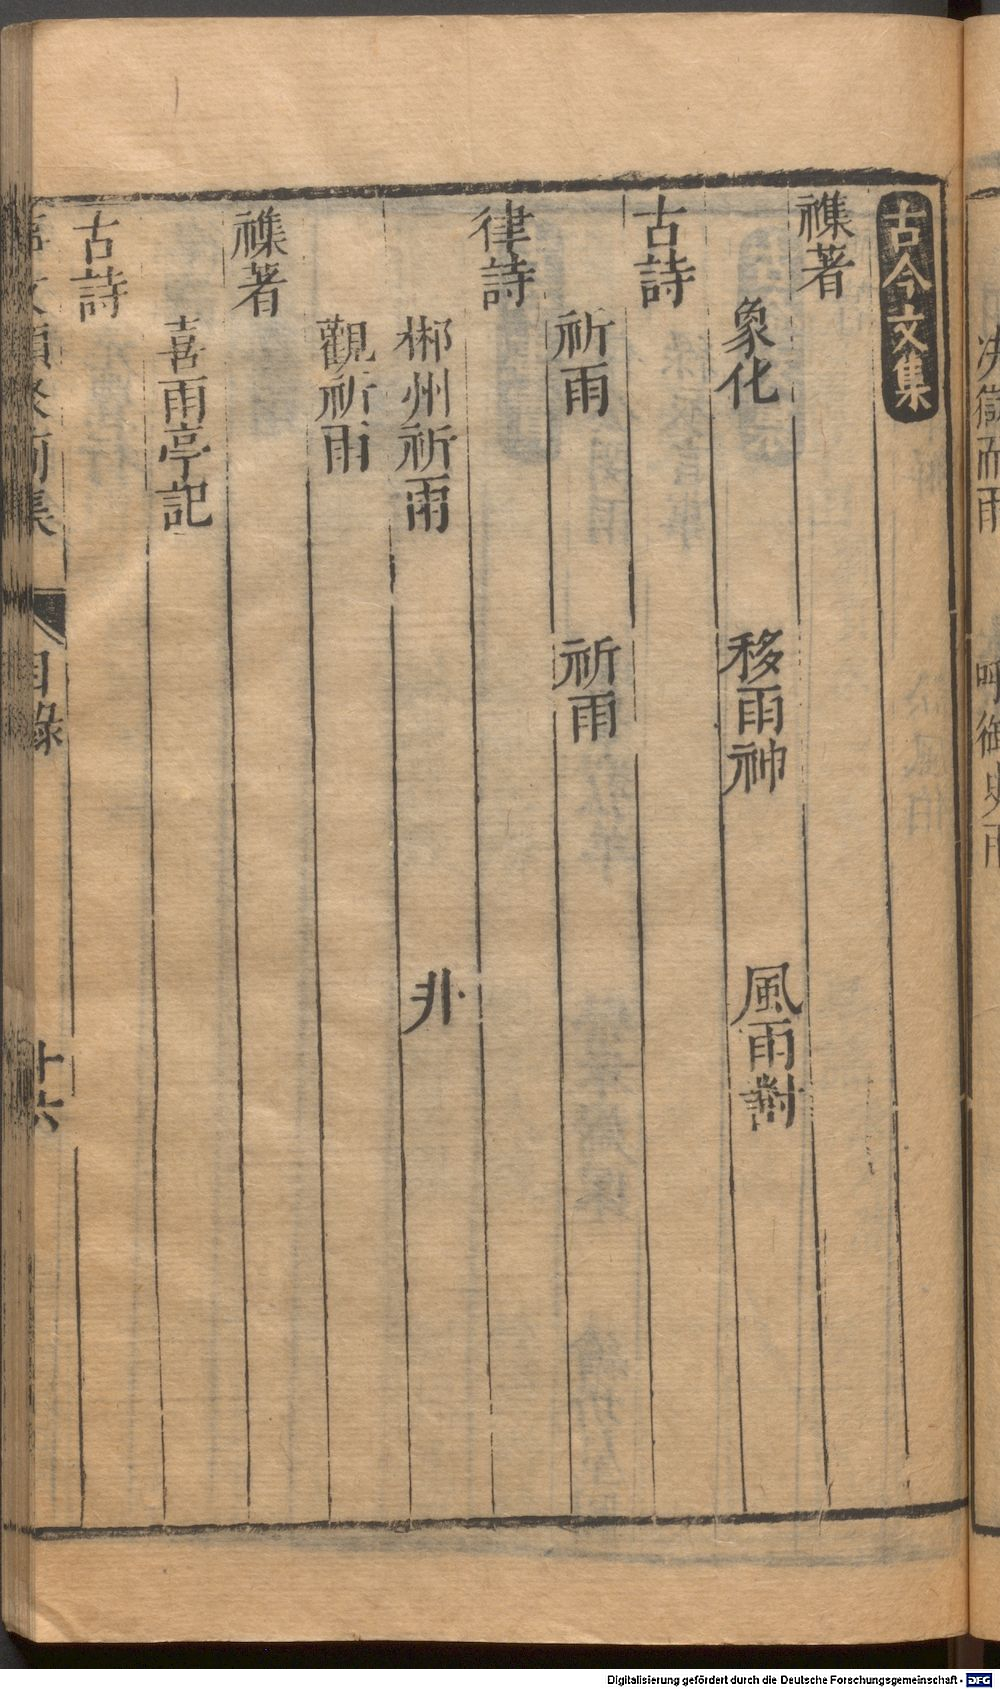 決獄而雨 御史雨
古今文集
襍著
象化 移雨神 風雨對
古詩
祈雨 祈雨
律詩
郴州祈雨 丱
觀祈雨
襍著
喜雨亭記
古詩
事文類聚前集 目錄 十六
Digitalisierung gefördert durch die Deutsche Forschungsgemeinschaft - DFG